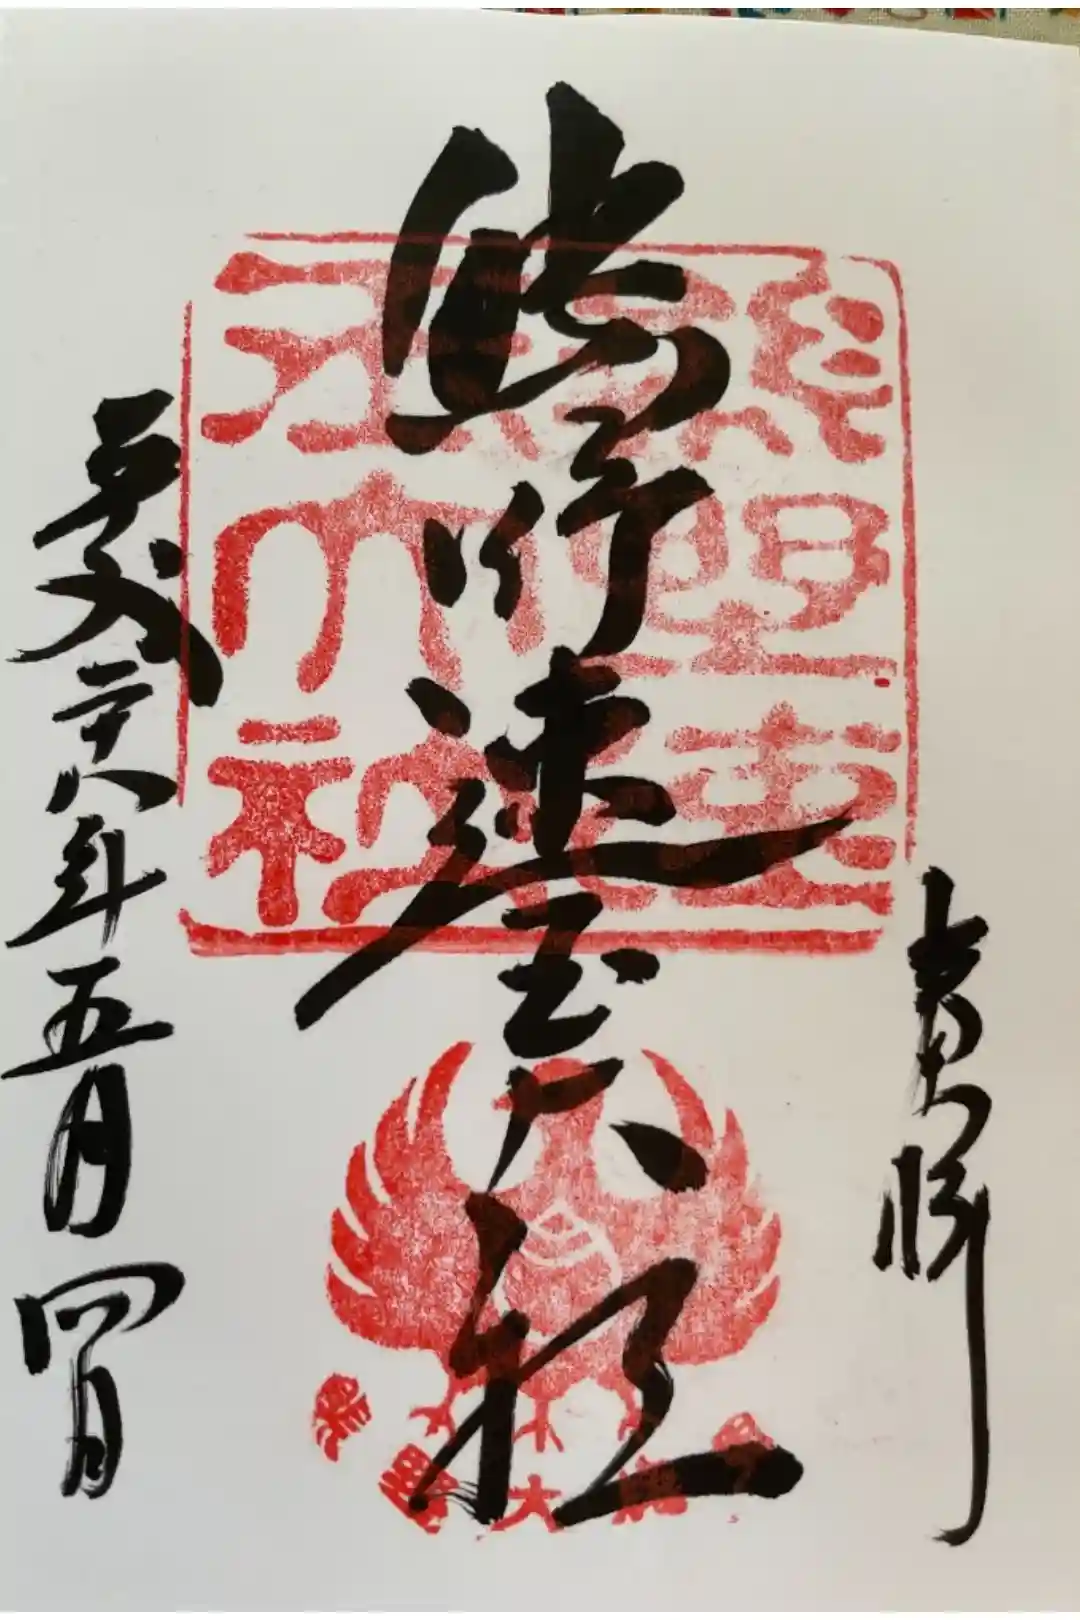 熊野速玉大社
平成二十八年五月四日
熊野速
玉大社
熊野大権現